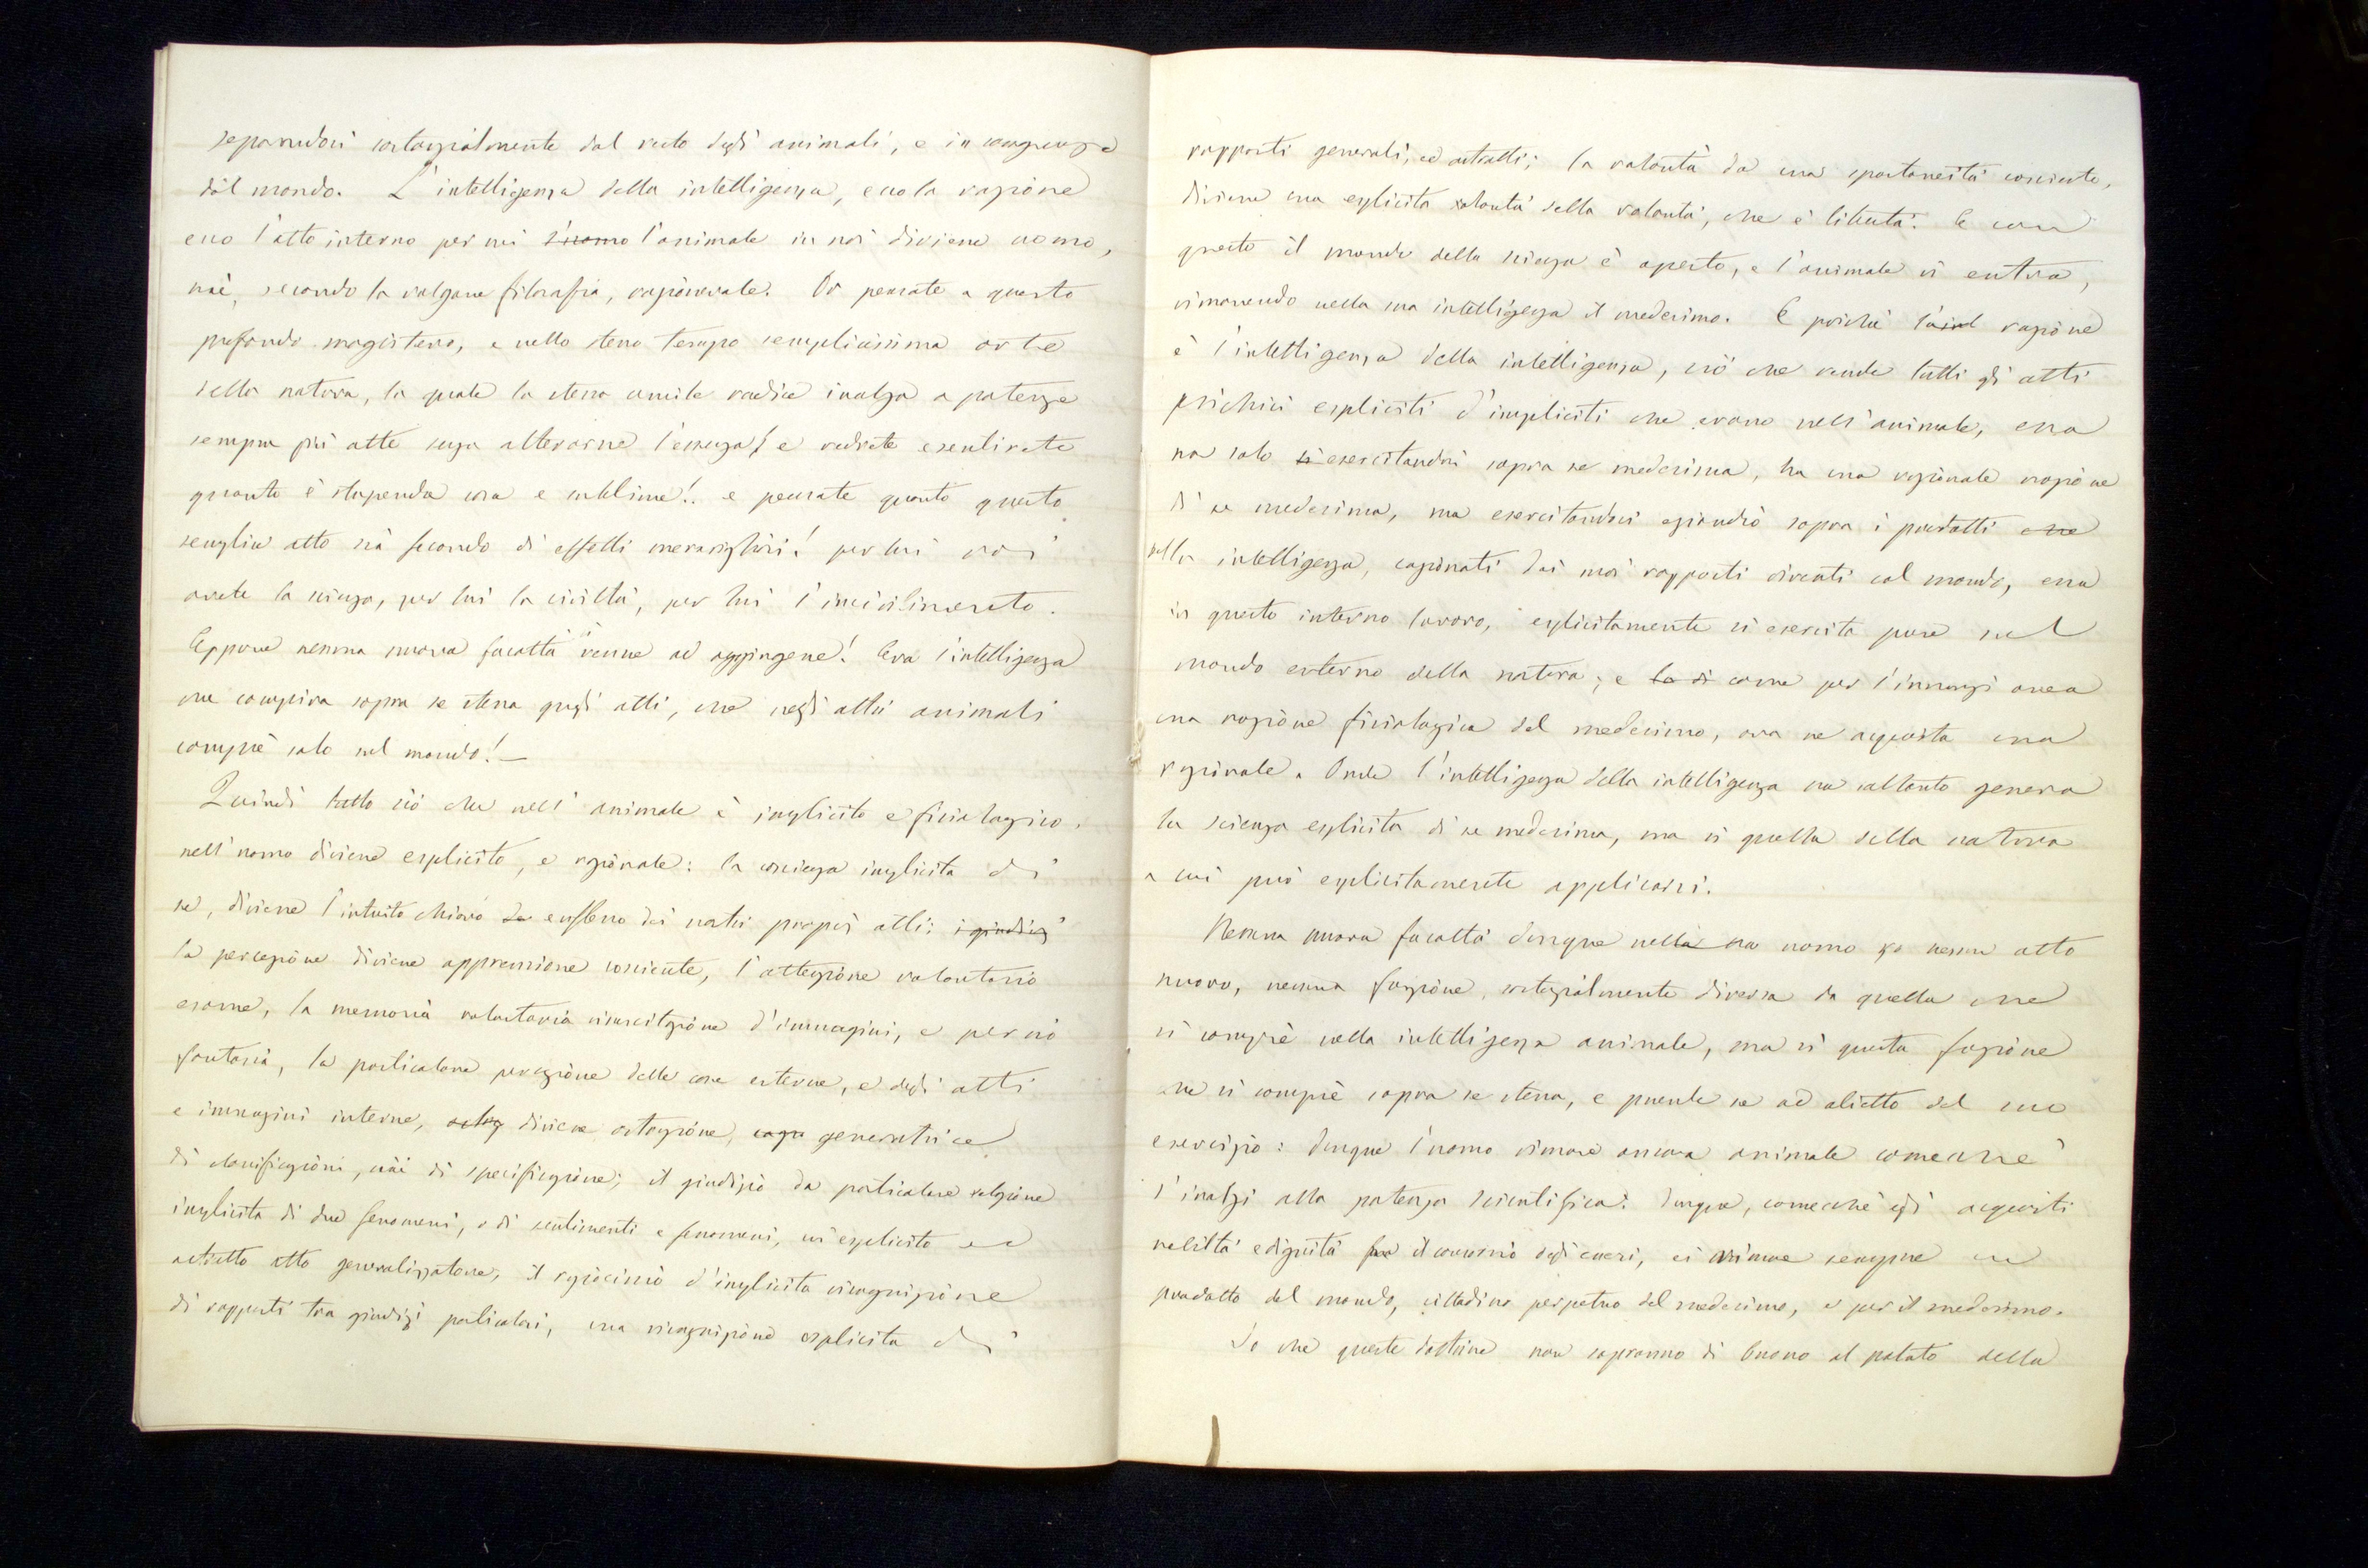 separandosi sostanzialmente dal resto degli animali, e in conseguenza
dal mondo. L'intelligenza della intelligenza, ecco la ragione
ecco l'atto interno per cui l'uomo l'animale in noi diviene uomo,
cioè, secondo la volgare filosofia, ragionevole. Or pensate a questo
profondo magistero, e nello stesso tempo semplicissima arte
della natura, la quale la stessa umile radice inalza a potenze
sempre più alte senza alterarne l'essenza! e vedrete e sentirete
quanto è stupenda cosa e sublime!.. e pensate quanto questo
semplice atto sia fecondo di effetti meravigliosi! per lui voi
avete la scienza, per lui la civiltà, per lui l'incivilimento.
Eppure nessuna nuova facoltà venne ad aggiungersi! Era l'intelligenza
che compiva sopra se stessa quegli atti, che negli altri animali
compiè solo nel mondo! —
Quindi tutto ciò che nell'animale è implicito e fisiologico,
nell'uomo diviene esplicito, e razionale: la coscienza implicita di
se, diviene l'intuito chiaro ed estheno dei nostri propri atti: i giudizi
la percezione diviene apprensione cosciente, l'attenzione volontario
esame, la memoria volontaria risuscitazione d'immagini, e perciò
fantasia, la particolare percezione delle cose esterne, e degli atti
e immagini interne, diviene astrazione, generatrice
di classificazioni, cioè di specificazione; il giudizio da particolare relazione
implicita di due fenomeni, o di sentimenti e fenomeni, un esplicito ed
astratto atto generalizzatore, il raziocinio d'implicita ricognizione
di rapporti tra giudizi particolari, una ricognizione esplicita di
rapporti generali, ed astratti; la volontà da una spontaneità cosciente,
diviene una esplicita volontà della volontà, che è libertà. E con
questo il mondo della scienza è aperto, e l'animale vi entra,
rimanendo nella sua intelligenza il medesimo. E poichè la ragione
è l'intelligenza della intelligenza, ciò che rende tutti gli atti
psichici espliciti d'impliciti che erano nell'animale, essa
no solo si esercitandosi sopra se medesima, ha una razionale nozione
di se medesima, ma esercitandosi eziandio sopra i prodotti che
nella intelligenza, cagionati dai suoi rapporti diretti col mondo, essa
in questo interno lavoro, esplicitamente si esercita pure nel
mondo esterno della natura; e come per l'innanzi avea
una nozione fisiologica del medesimo, ora ne acquista una
razionale. Onde l'intelligenza della intelligenza no soltanto genera
la scienza esplicita di se medesima, ma sì quella della natura
a cui può esplicitamente applicarsi.
Nessuna nuova facoltà dunque nell' uomo nessun atto
nuovo, nessuna funzione, sostanzialmente diversa da quella che
si compiè nella intelligenza animale, ma sì questa funzione
che si compiè sopra se stessa, e prende se ad obietto del suo
esercizio: dunque l'uomo rimane ancora animale comecchè
s'inalzi alla potenza scientifica: dunque, comecchè egli acquisti
nobiltà e dignità fra il consorzio degli esseri, ei rimane sempre un
prodotto del mondo, cittadino perpetuo del medesimo, e per il medesimo.
So che queste dottrine non sapranno di buono al palato della